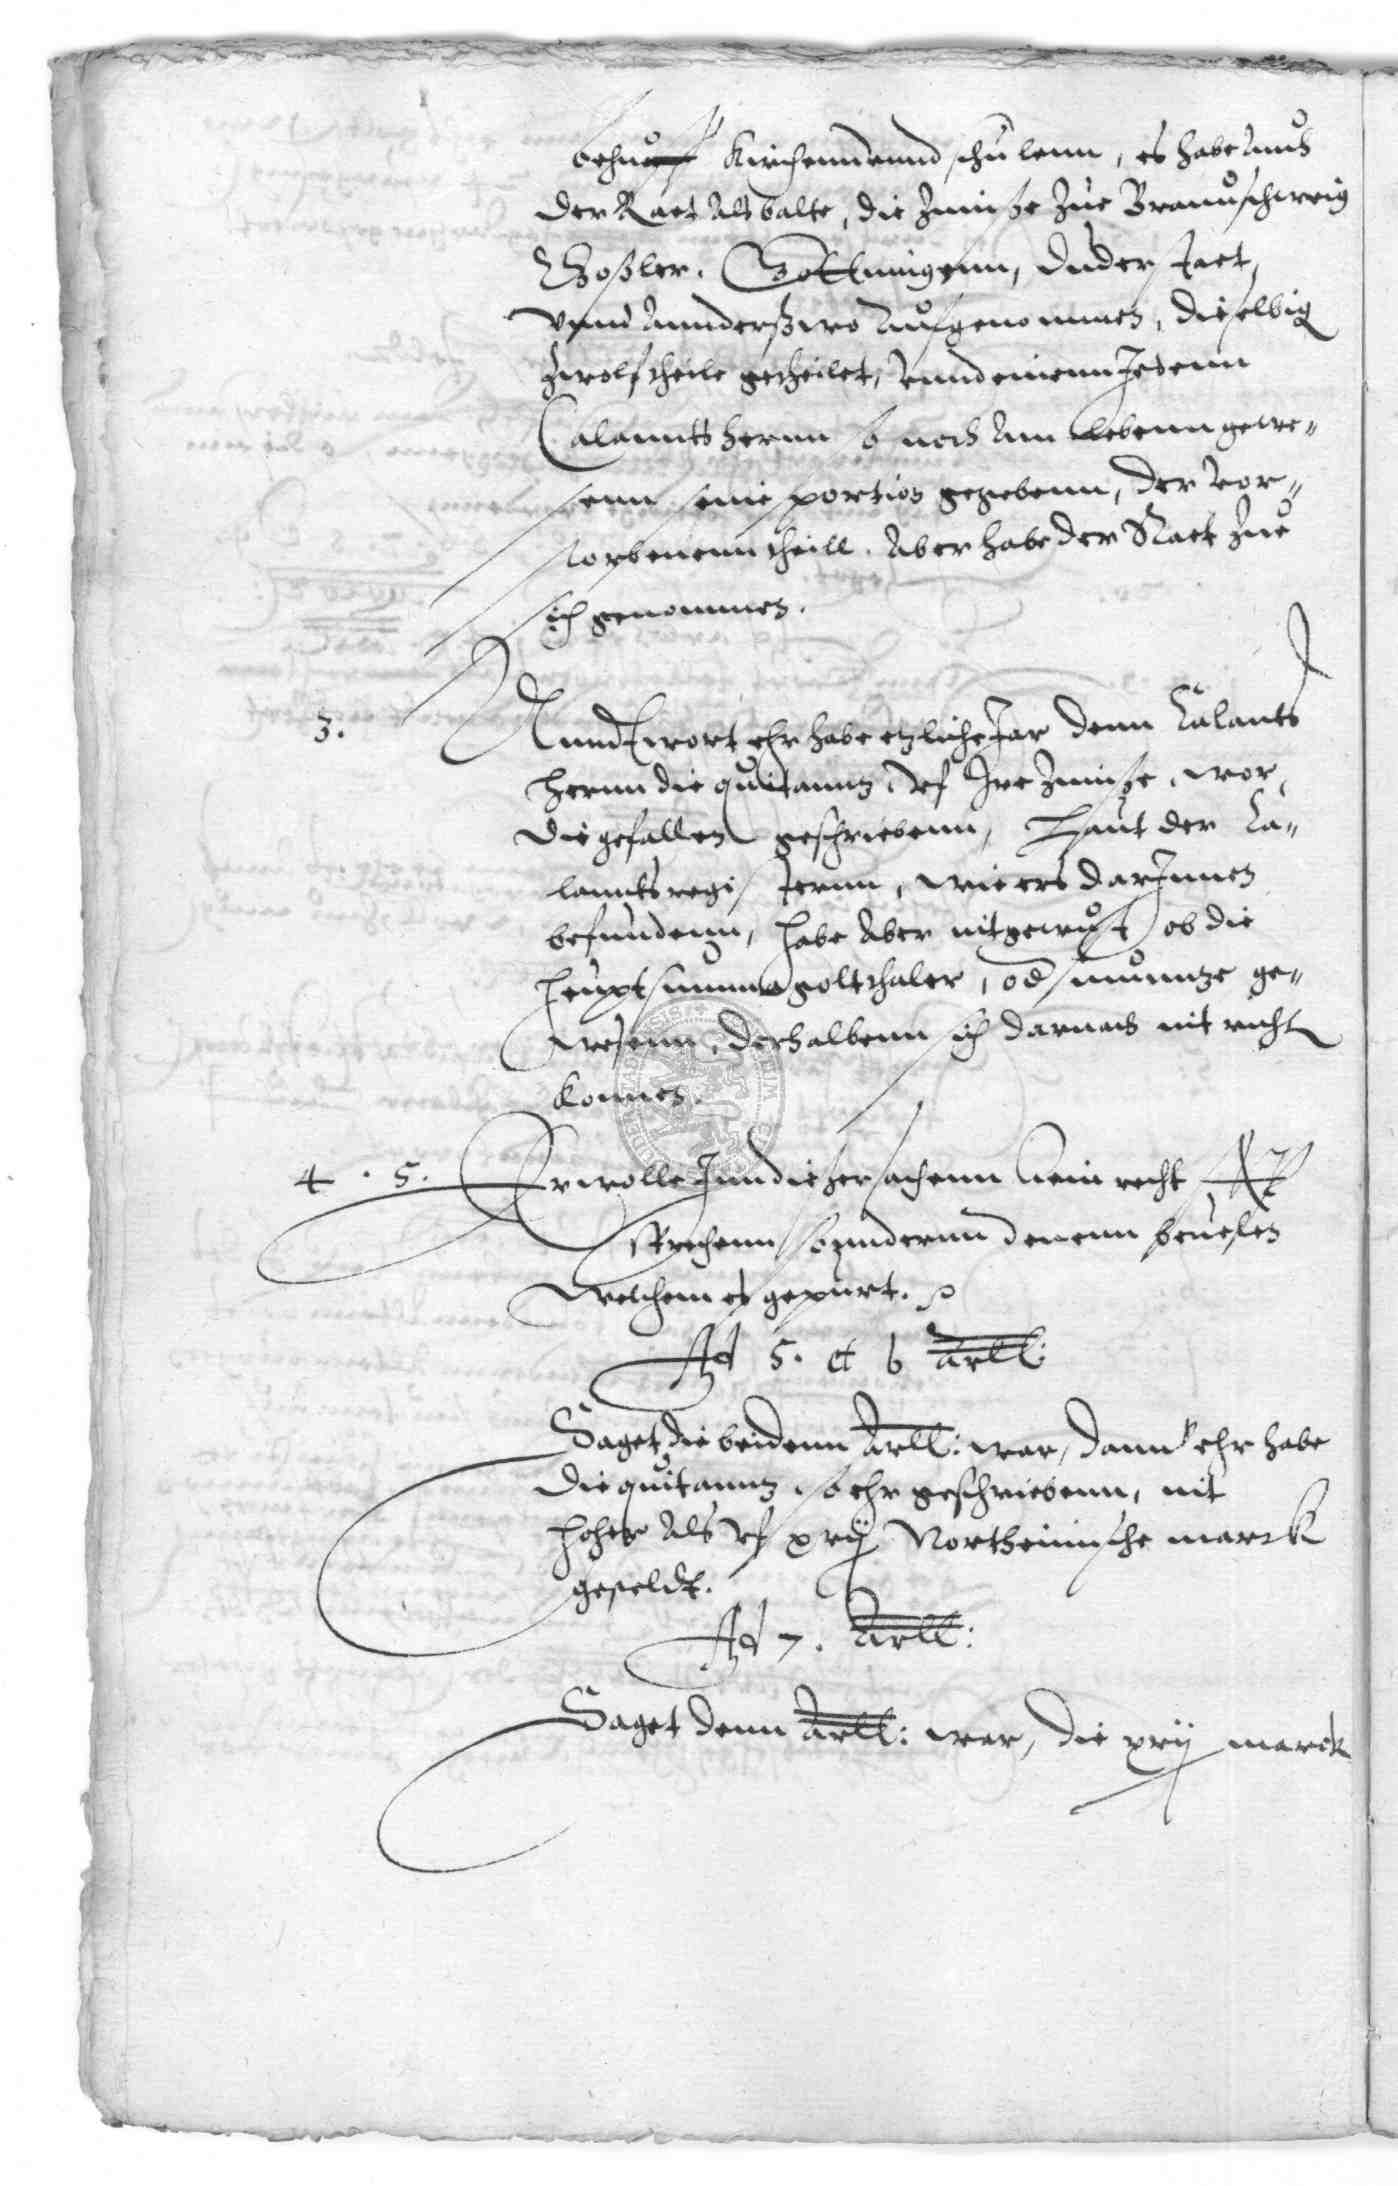 behuff Kirchenn unnd schulenn, es habe auch
der Raet als balte, die Zinnse Zue Braunschweig
Goßler. Gottinngenn, Duderstaet,
vnnd annderßwo aufgenommen, dieselbig
Zwolf theile getheilet, vnnd einenn Jedenn
Calannts herrnn so noch am lebenn gewe-
senn seine portion gegebenn, der vor-
storbenenn theill. aber habe der Raet Zue
sich genommen.
3. Anndtwort ehr habe etzliche Jar denn Calants
herrnn die quitanntz, vf Ire Zinnse, wor,
die gefallen geschriebenn, Laut der Ca-
lannts registernn, wie ers darInnen
befundenn, habe aber nit gewust ob die
heuptsumma golt thaler, oder muntze ge-
wesenn, derhalbenn sich darnach nit richten
konnen.
4. 5. Er wolle Inn dießer sachenn kein recht
sprechenn sounndernn denenn beuelen
welchem es gepurt.
Ad 5. et 6 Artl:
Saget die beidenn Artl: war, dann ehr habe
die quitanntz, so ehr geschriebenn, nit
hoher als vf xvij Northeimische marck
gesteldt.
Ad 7. Artl:
Saget denn Artl: war, die xvij marck